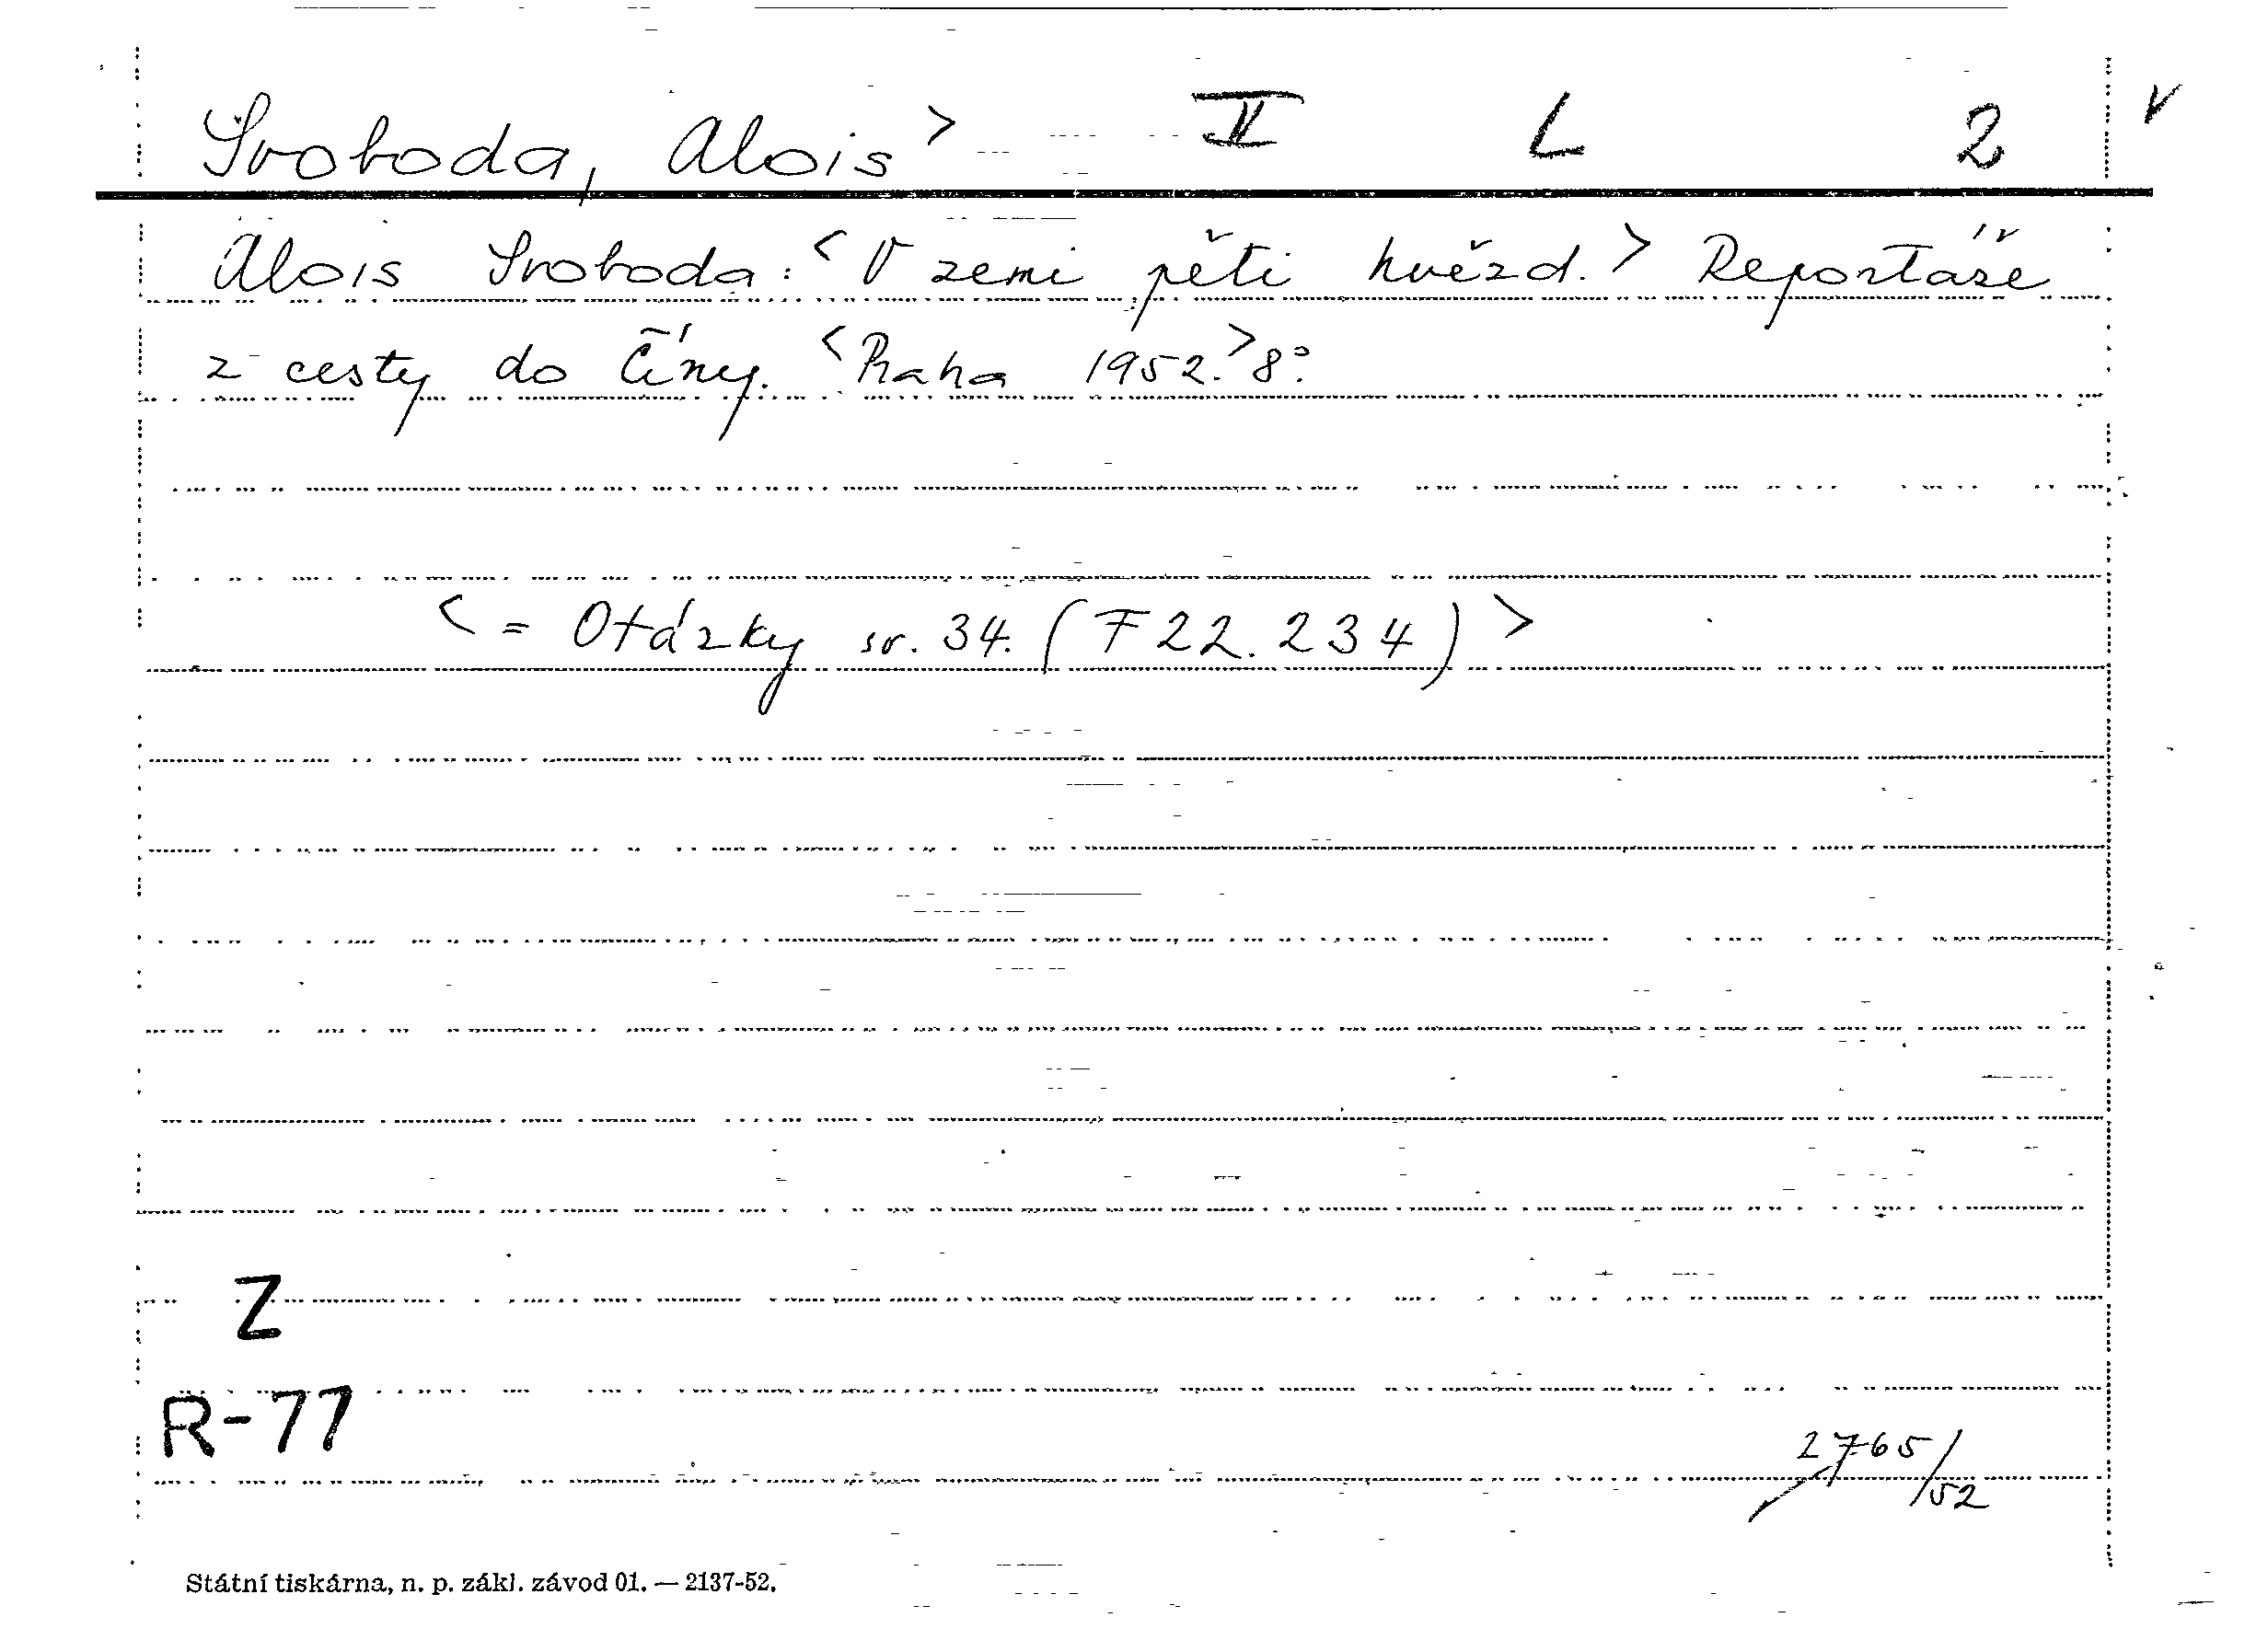 Svoboda, Alois > II L 2 v
Alois Svoboda: <V zemi pěti hvězd.> Reportáže
z cesty do Číny. <Praha 1952.> 8°.
< = Otázky sv. 34. (F 22.234) >
Z
R-77
2765/52
Státní tiskárna, n. p. zákl. závod 01. — 2137-52.